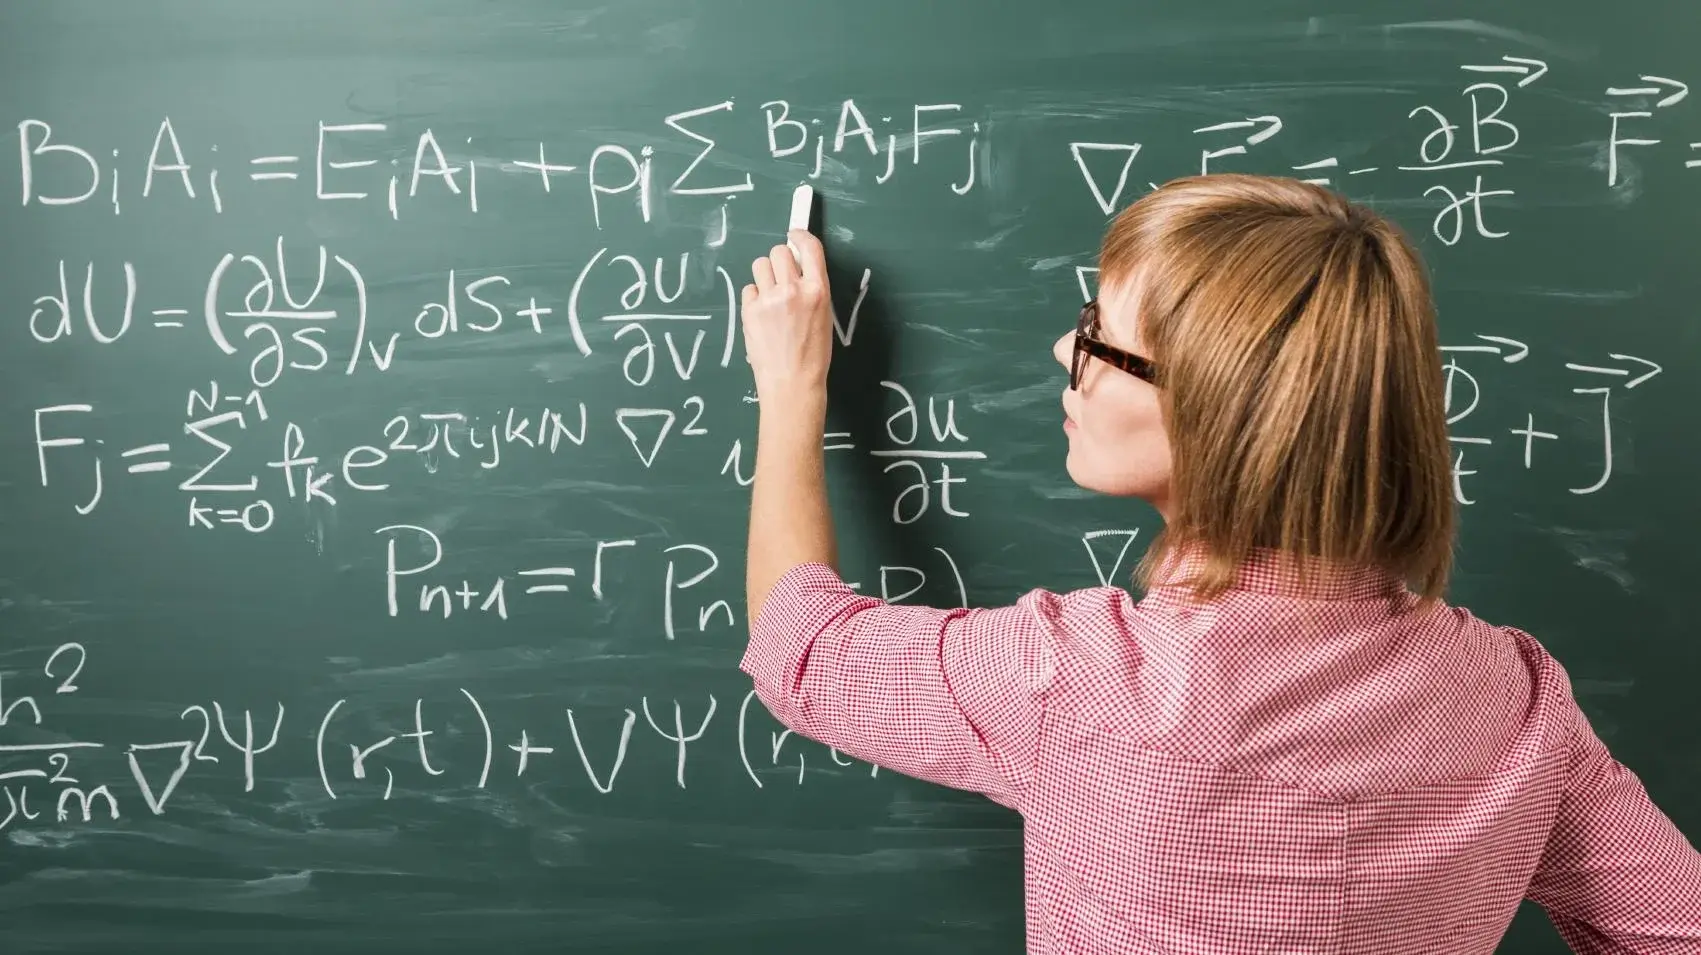 BᵢAᵢ = EᵢAᵢ + ρᵢ Σⱼ BⱼAⱼFⱼ
∇ = - ∂B⃗/∂t
F⃗ =
dU = (∂U/∂S)ᵥ dS + (∂U/∂V) V
Fⱼ = Σ_{k=0}^{N-1} fₖ e^{2πijk/N}
∇² = ∂u/∂t
+ J⃗
Pₙ₊₁ = r Pₙ
∇
h²/π²m ∇²Ψ (r,t) + VΨ (r,t